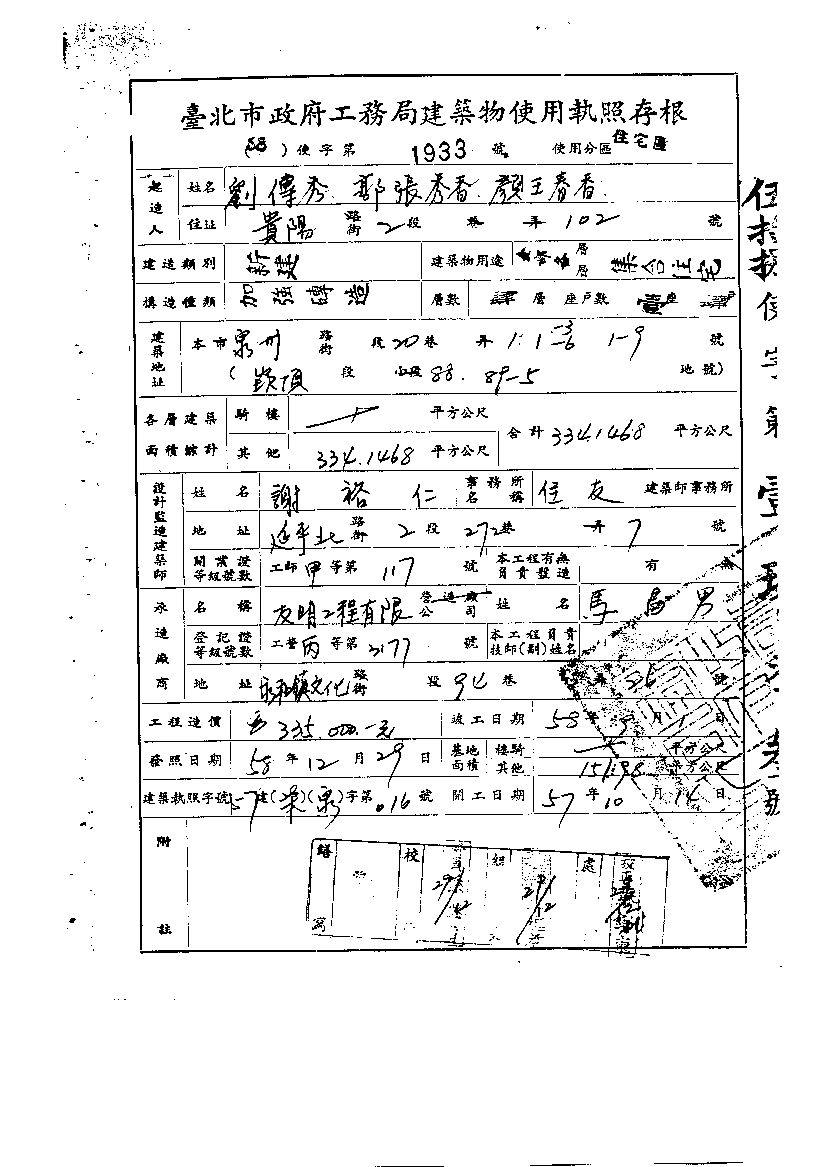 臺北市政府工務局建築物使用執照存根
(58)使字第 1933 號 使用分區 住宅區
起造人 姓名 劉傳秀.郭張秀香.顏王春香.
住址 貴陽 路街 2段 巷 弄 102 號
建造類別 新建 建築物用途 層層 集合住宅
構造種類 加強磚造 層數 肆層 座戶數 壹座 肆戶
建築地址 本市泉州 路街 段20巷 弄 1.1-3 1-9 號
段 小段88.89-5 地號)
各層建築面積總計 騎樓 平方公尺 合計334.1468 平方公尺
其他 334.1468 平方公尺
設計監造建築師 姓名 謝裕仁 事務所名稱 住友 建築師事務所
地址 延平北 路街 2段 272巷 弄7 號
開業證等級號數 工師甲等第 117 號 本工程有無負責監造 有
承造廠商 名稱 友明工程有限 營造廠公司 姓名 馬 男
登記證等級號數 工營丙等第 3177 號 本工程負責技師(副)姓名
地址 永和鎮文化 路街 段94巷 弄 號
工程造價 335.000.-元 竣工日期 58年9月1日
發照日期 58年12月29日 基地面積 樓騎 平方公尺
其他 151.98 平方公尺
建築執照字號 57建( )(泉)字第016號 開工日期 57年10月14日
附註
繕寫 校 組 處
29/12 29/12
伍捌使字第壹玖叁叁號